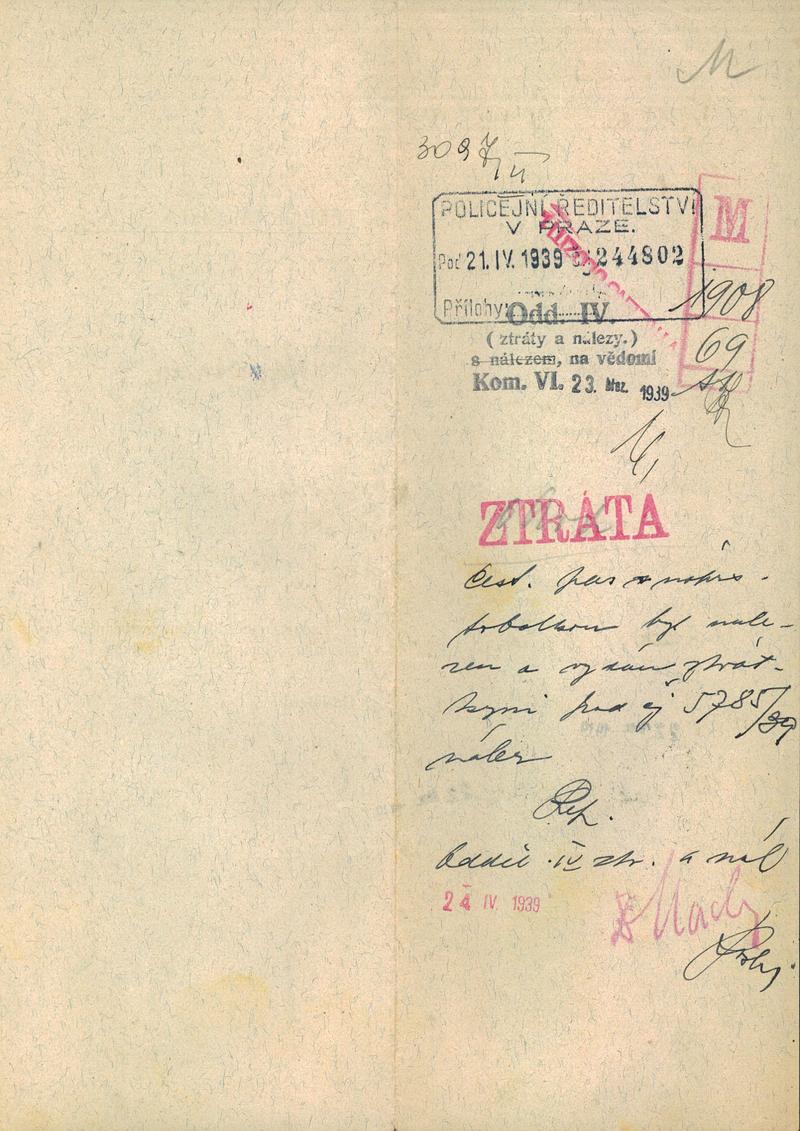 M
3097/II
POLICEJNÍ ŘEDITELSTVÍ
V PRAZE.
Poď 21. IV. 1939 čj 244802
Přílohy:
M
1908
69
Odd. IV.
(ztráty a nálezy.)
s nálezem, na vědomí
Kom. VI. 23. 1939
ZTRÁTA
čest. pas s náprs.
tobolkou byl nale-
zen a vydán ztrát-
kyni pod čj 5785/39
nález
Rep.
Odděl. IV ztr. a nál
24 IV 1939